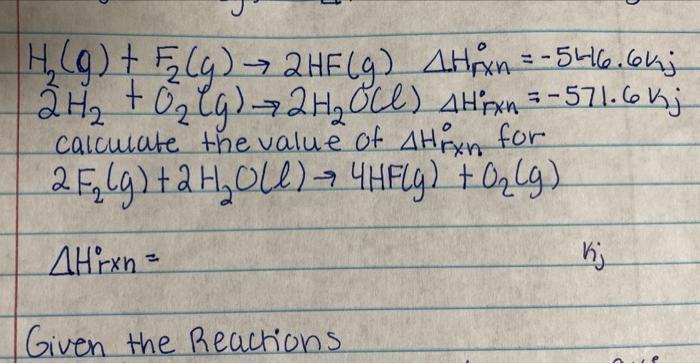 H₂(g) + F₂(g) → 2HF(g) ΔH°rxn = -546.6kj
2H₂ + O₂(g) → 2H₂O(l) ΔH°rxn = -571.6kj
calculate the value of ΔH°rxn for
2F₂(g) + 2H₂O(l) → 4HF(g) + O₂(g)
ΔH°rxn = kj
Given the Reactions